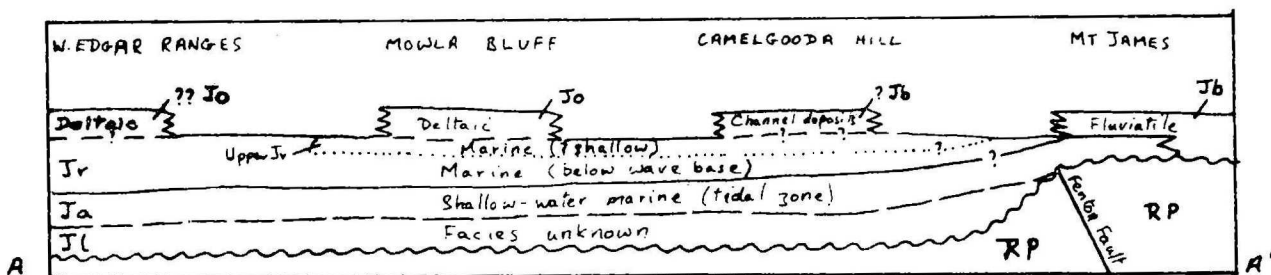 W. EDGAR RANGES MOWLA BLUFF CAMELGOODA HILL MT JAMES
?? Jo Jo ? Jb Jb
Deltaic Deltaic Channel deposits Fluviatile
? ? ?
Upper Jr Marine (?shallow) ?
Jr Marine (below wave base) ?
Ja Shallow-water marine (tidal zone)
?
Jl Facies unknown
RP Fenton Fault RP
A A'